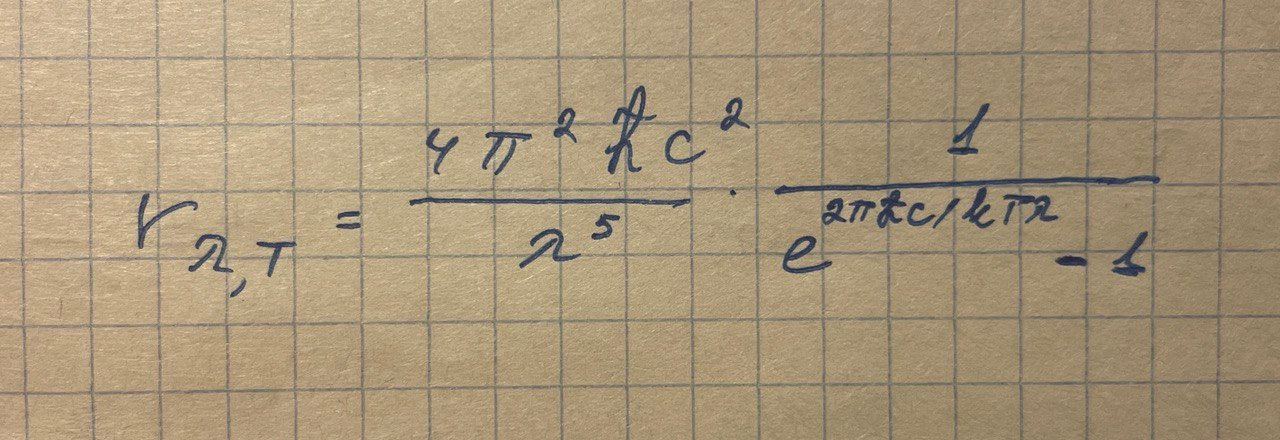 r_{λ,T} = \frac{4π^2 ħc^2}{λ^5} · \frac{1}{e^{2πħc/kTλ} - 1}